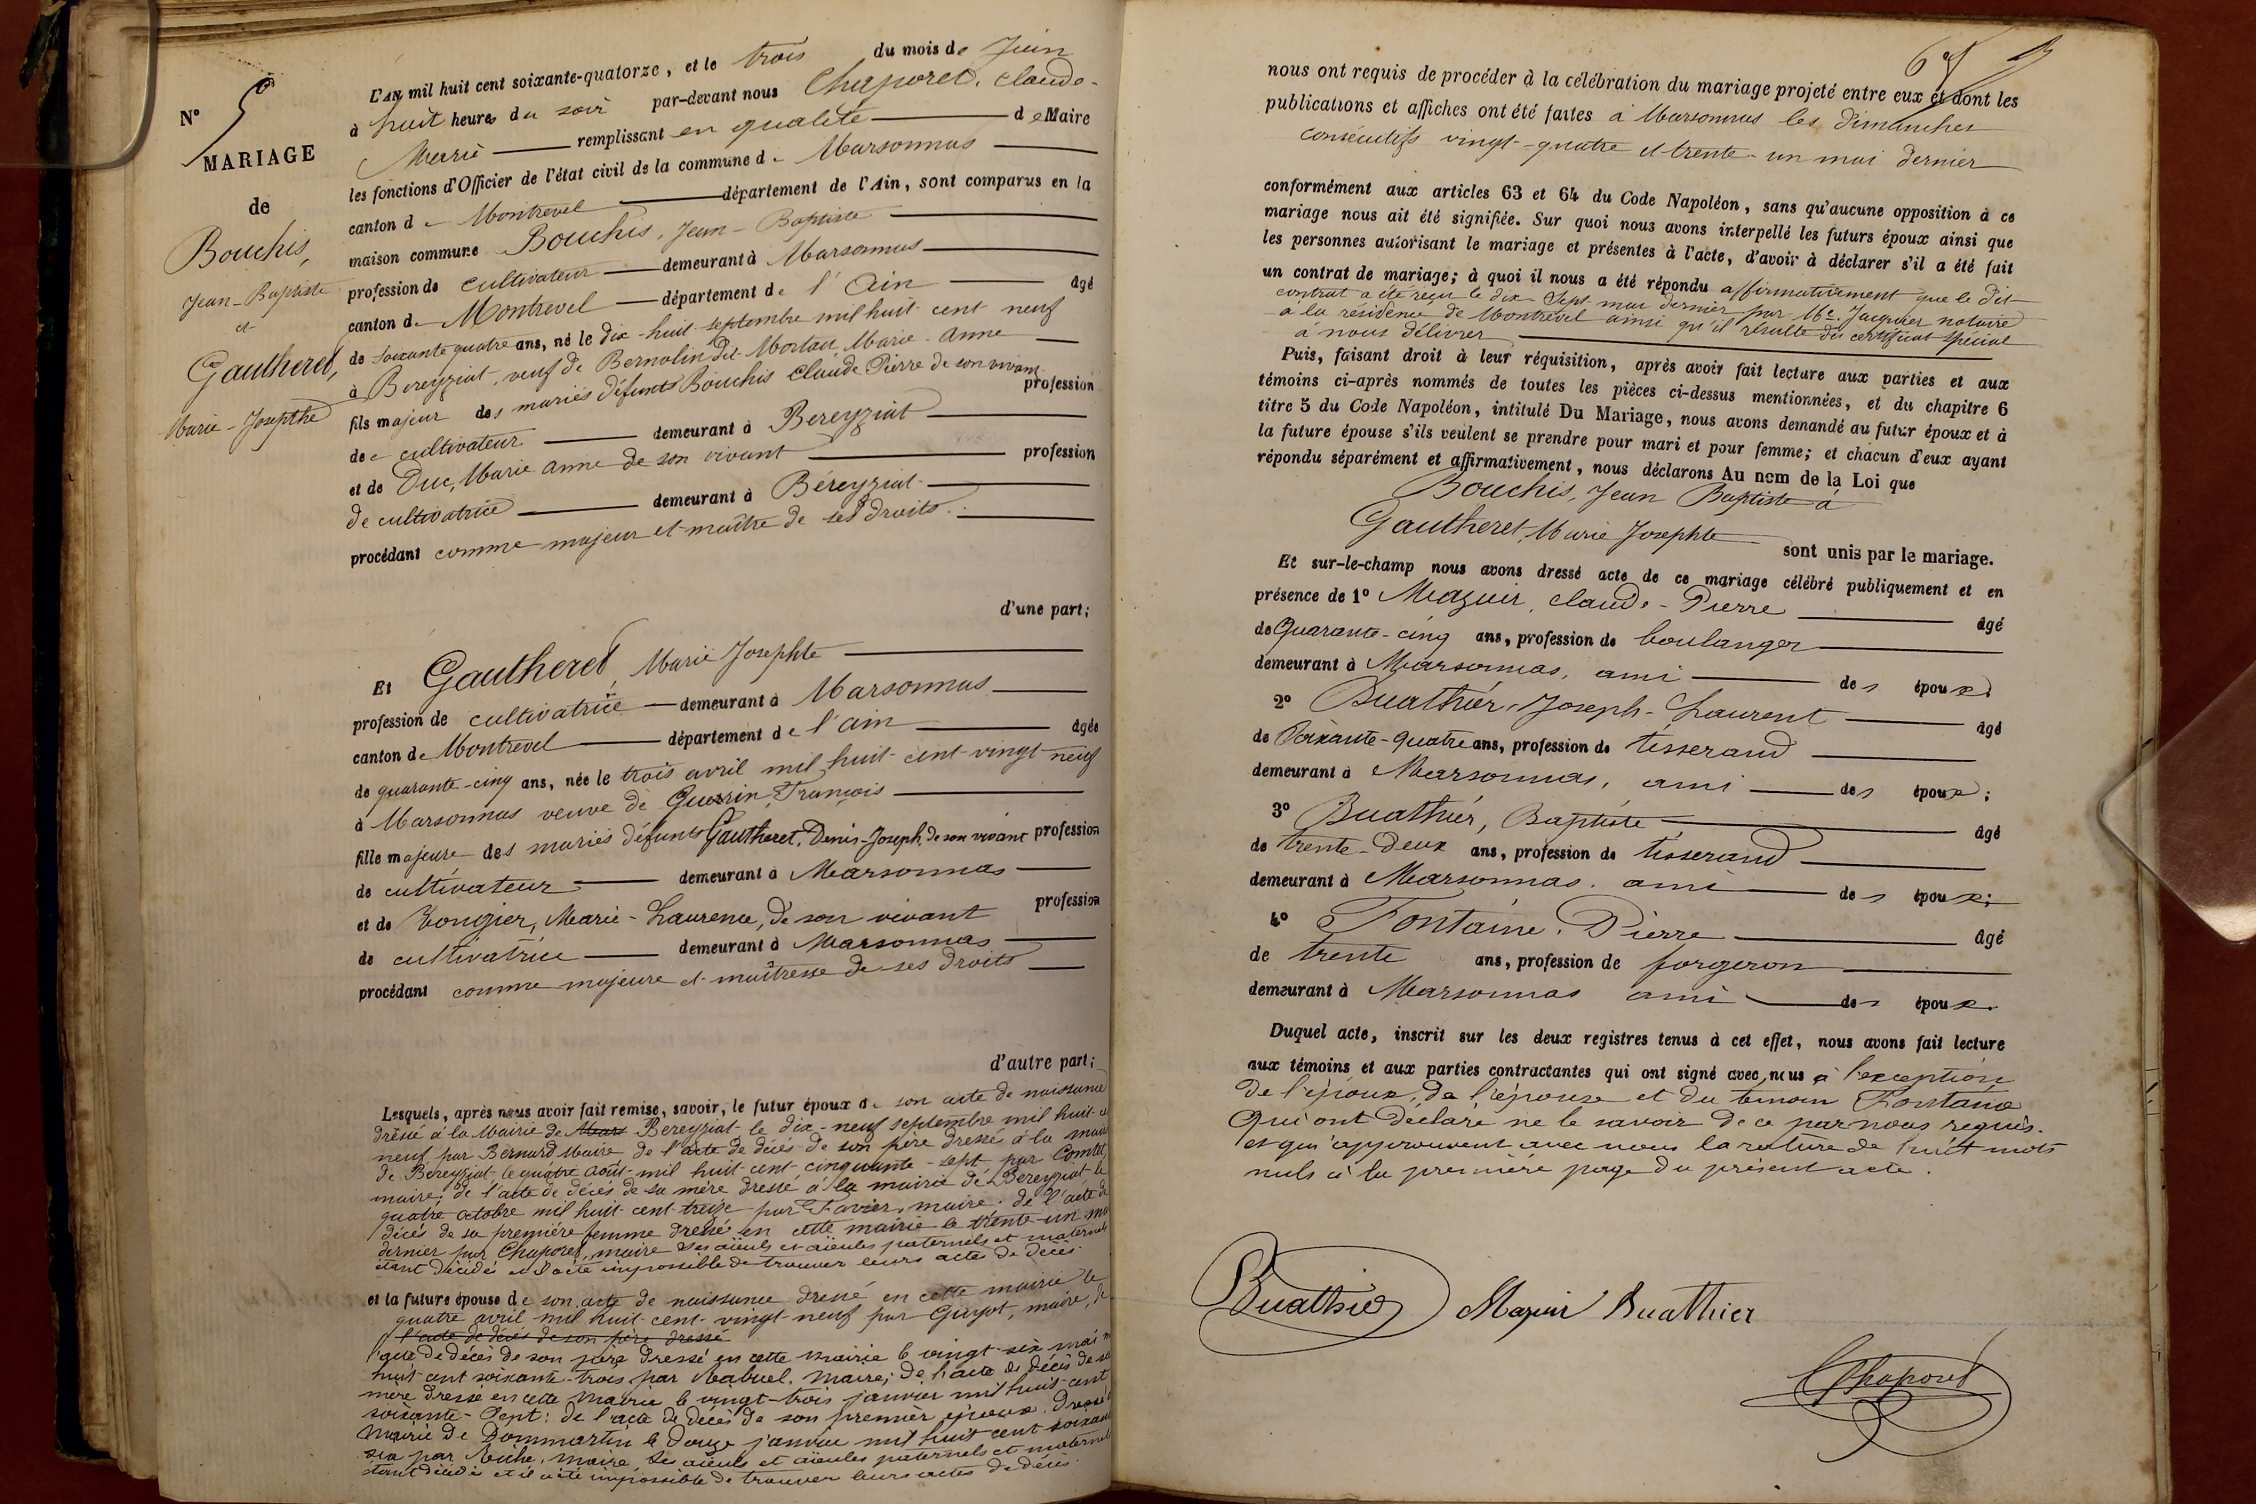 N° 5
MARIAGE
de
Bouchis,
Jean-Baptiste
et
Gautheret,
Marie-Josephte
L'AN mil huit cent soixante-quatorze, et le trois du mois de Juin
à huit heures du soir par-devant nous Chaporet, Claude-
Marie remplissant en qualité de Maire
les fonctions d'Officier de l'état civil de la commune de Marsonnas
canton de Montrevel département de l'Ain, sont comparus en la
maison commune Bouchis, Jean-Baptiste
profession de cultivateur demeurant à Marsonnas
canton de Montrevel département de l'Ain âgé
de soixante quatre ans, né le dix-huit septembre mil huit cent neuf
à Bereyziat, veuf de Bernolin dit Morlan Marie-Anne
fils majeur des mariés défunts Bouchis Claude Pierre de son vivant profession
de cultivateur demeurant à Bereyziat
et de Duc, Marie anne de son vivant profession
de cultivatrice demeurant à Béreyziat
procédant comme majeur et maître de ses droits.
d'une part;
Et Gautheret, Marie Josephte
profession de cultivatrice demeurant à Marsonnas
canton de Montrevel département de l'ain âgée
de quarante-cinq ans, née le trois avril mil huit cent vingt neuf
à Marsonnas veuve de Guerrin, François
fille majeure des mariés défunts Gautheret, Denis-Joseph, de son vivant profession
de cultivateur demeurant à Marsonnas
et de Rongier, Marie-Laurence, de son vivant profession
de cultivatrice demeurant à Marsonnas
procédant comme majeure et maîtresse de ses droits
d'autre part;
Lesquels, après nous avoir fait remise, savoir, le futur époux de son acte de naissance
dressé à la Mairie de Mars Bereyziat le dix-neuf septembre mil huit c
neuf par Bernard Maire de l'acte de décès de son père dressé à la mairie
de Bereyziat le quatre août mil huit cent cinquante-sept par Comtet,
maire, de l'acte de décès de sa mère dressé à la mairie de Bereyziat le
quatre octobre mil huit cent treize par Favier, maire. de l'acte de
décès de sa première femme dressé en cette mairie le trente-un mai
dernier par Chaporet, maire ses aïeuls et aïeules paternels et maternels
étant décédés et il a été impossible de trouver leurs actes de décès.
et la future épouse de son acte de naissance dressé en cette mairie le
quatre avril mil huit cent vingt neuf par Guyot, maire, de
l'acte de décès de son père dressé
l'acte de décès de son père dressé en cette mairie le vingt-six mai m
huit cent soixante-trois par Rabuel, maire; de l'acte de décès de sa
mère dressé en cette mairie le vingt-trois janvier mil huit cent
soixante-sept: de l'acte de décès de son premier époux. dressé
mairie de Dommartin le douze janvier mil huit cent soixan
six par Riche, maire, ses aïeuls et aïeules paternels et maternels
étant décédés et il a été impossible de trouver leurs actes de décès.
nous ont requis de procéder à la célébration du mariage projeté entre eux et dont les
publications et affiches ont été faites à Marsonnas les dimanches
consécutifs vingt-quatre et trente-un mai dernier
conformément aux articles 63 et 64 du Code Napoléon, sans qu'aucune opposition à ce
mariage nous ait été signifiée. Sur quoi nous avons interpellé les futurs époux ainsi que
les personnes autorisant le mariage et présentes à l'acte, d'avoir à déclarer s'il a été fait
un contrat de mariage; à quoi il nous a été répondu affirmativement que le dit
contrat a été reçu le dix Sept mai dernier par Me. Jacquier notaire
à la résidence de Montrevel ainsi qu'il résulte du certificat spécial
à nous délivrer
Puis, faisant droit à leur réquisition, après avoir fait lecture aux parties et aux
témoins ci-après nommés de toutes les pièces ci-dessus mentionnées, et du chapitre 6
titre 5 du Code Napoléon, intitulé Du Mariage, nous avons demandé au futur époux et à
la future épouse s'ils veulent se prendre pour mari et pour femme; et chacun d'eux ayant
répondu séparément et affirmativement, nous déclarons Au nom de la Loi que
Bouchis, Jean Baptiste à
Gautheret, Marie Josephte sont unis par le mariage.
Et sur-le-champ nous avons dressé acte de ce mariage célébré publiquement et en
présence de 1° Mazuir, Claude-Pierre âgé
de Quarante-cinq ans, profession de boulanger
demeurant à Marsonnas, ami des époux.
2° Buathier, Joseph-Laurent âgé
de Soixante-quatre ans, profession de tisserand
demeurant à Marsonnas, ami des époux;
3° Buathier, Baptiste âgé
de trente-deux ans, profession de tisserand
demeurant à Marsonnas. ami des époux;
4° Fontaine, Pierre âgé
de trente ans, profession de forgeron
demeurant à Marsonnas ami des époux.
Duquel acte, inscrit sur les deux registres tenus à cet effet, nous avons fait lecture
aux témoins et aux parties contractantes qui ont signé avec nous à l'exception
de l'époux, de l'épouse et du témoin Fontaine
qui ont déclaré ne le savoir de ce par nous requis.
et qui approuvent avec nous la rature de huit mots
nuls à la première page du présent acte.
Buathier Mazuir Buathier
Chaporet